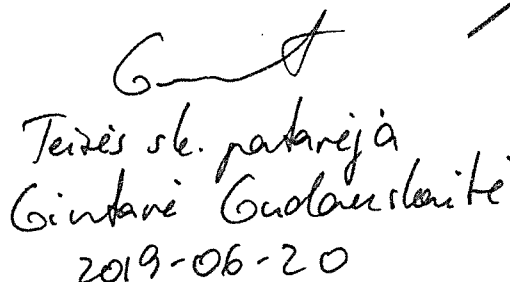 Teisės sk. patarėja
Gintarė Gudauskaitė
2019-06-20